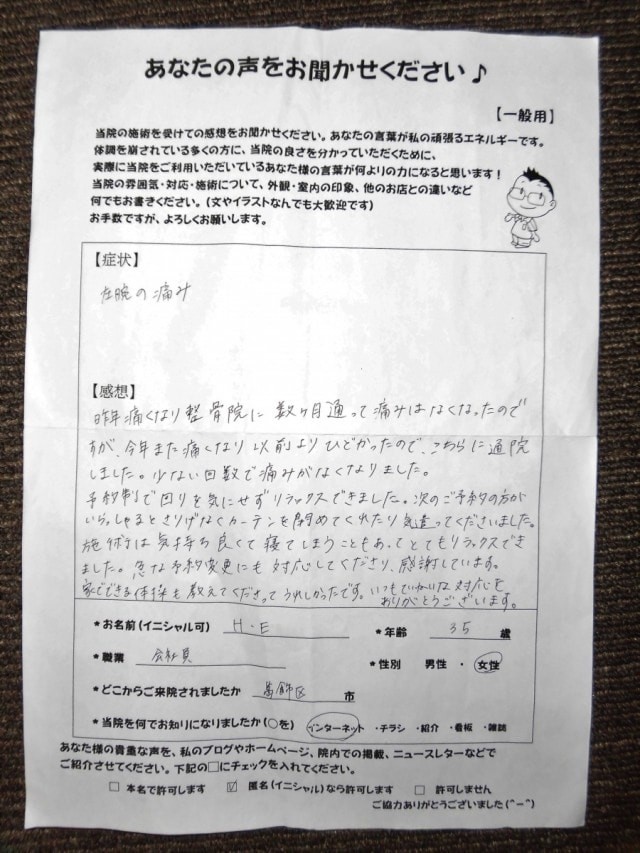 あなたの声をお聞かせください♪
【一般用】
当院の施術を受けての感想をお聞かせください。あなたの言葉が私の頑張るエネルギーです。
体調を崩されている多くの方に、当院の良さを分かっていただくために、
実際に当院をご利用いただいているあなた様の言葉が何よりの力になると思います!
当院の雰囲気・対応・施術について、外観・室内の印象、他のお店との違いなど
何でもお書きください。(文やイラストなんでも大歓迎です)
お手数ですが、よろしくお願いします。
【症状】
左腕の痛み
【感想】
昨年痛くなり整骨院に数ヶ月通って痛みはなくなったので
すが、今年また痛くなり以前よりひどかったので、こちらに通院
しました。少ない回数で痛みがなくなりました。
予約制で回りを気にせずリラックスできました。次のご予約の方が
いらっしゃるとさりげなくカーテンを閉めてくれたり気遣ってくださいました。
施術は気持ち良くて寝てしまうこともあってとてもリラックスでき
ました。急な予約変更にも対応してくださり、感謝しています。
家でできる体操も教えてくださってうれしかったです。いつもていねいな対応を
ありがとうございます。
*お名前(イニシャル可) H・E *年齢 35 歳
*職業 会社員 *性別 男性 ・ 女性
*どこからご来院されましたか 葛飾区 市
*当院を何でお知りになりましたか(○を) インターネット ・チラシ ・紹介 ・看板 ・雑誌
あなた様の貴重な声を、私のブログやホームページ、院内での掲載、ニュースレターなどで
ご紹介させてください。下記の□にチェックを入れてください。
□ 本名で許可します ☑ 匿名(イニシャル)なら許可します □ 許可しません
ご協力ありがとうございました(^-^)